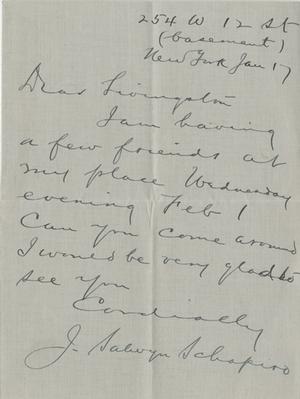 254 W 12 St
(basement)
New York Jan 17
Dear Livingston
I am having
a few friends at
my place Wednesday
evening Feb 1
Can you come around
I would be very glad to
see you
Cordially
J. Salwyn Schapiro